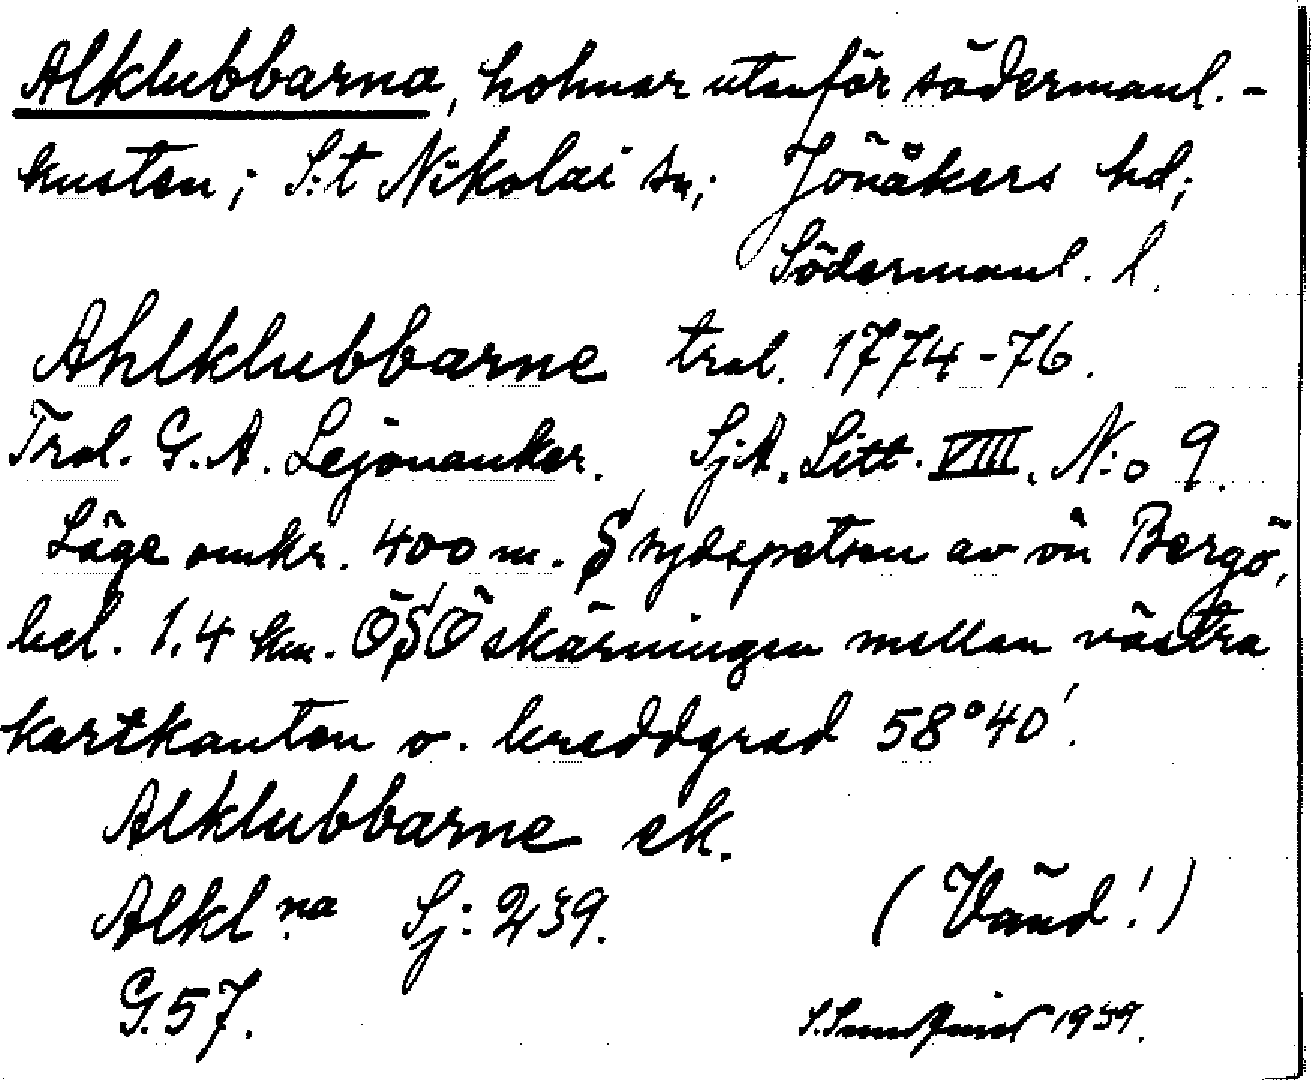 Alklubbarna, holmar utanför södermanl.-
kusten; S:t Nikolai sn; Jönåkers hd;
Södermanl. l.
Ahlklubbarne tral. 1774-76.
Tral. G. A. Lejonanker. SjA. Litt. VIII. N:o 9.
Läge omkr. 400 m. S sydspetsen av ön Bergö,
bel. 1.4 km. ÖSÖ skärningen mellan västra
kartkanten o. breddgrad 58°40'.
Alklubbarne ek.
Alkl.na Sj: 239.
(Vänd!)
G. 57.
1939.